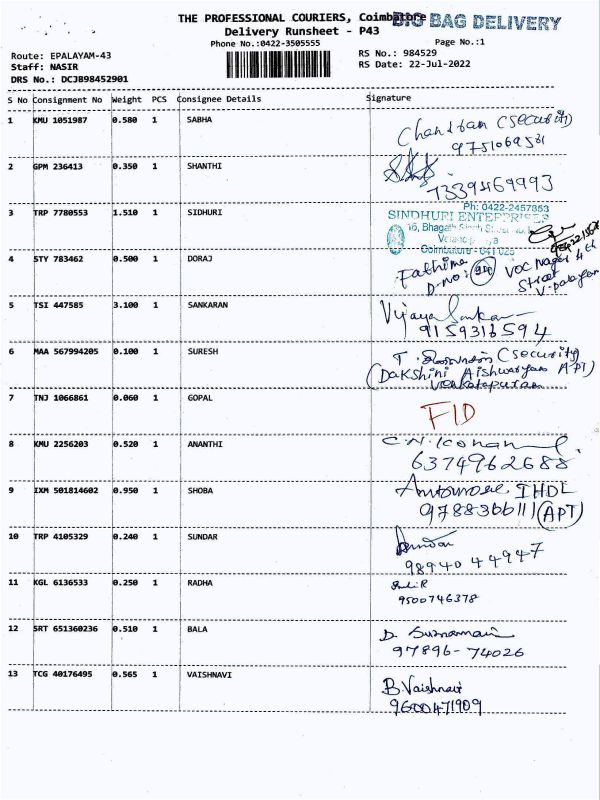 THE PROFESSIONAL COURIERS, Coimbatore
BIG BAG DELIVERY
Delivery Runsheet - P43
Phone No.:0422-3505555
Page No.:1
Route: EPALAYAM-43
RS No.: 984529
Staff: NASIR
RS Date: 22-Jul-2022
DRS No.: DCJB98452901
S No Consignment No Weight PCS Consignee Details Signature
1 KMU 1051987 0.580 1 SABHA
(Security)
9751069531
2 GPM 236413 0.350 1 SHANTHI
7339469993
3 TRP 7780553 1.510 1 SIDHURI
Ph: 0422-2457353
SINDHURI ENTERPRISES
16, Bhagath Singh
Coimbatore - 641 025
4 STY 783462 0.500 1 DORAJ
Fathima VOC Nagar 4th
D.No: Street
5 TSI 447585 3.100 1 SANKARAN
Vijaya Sankar
9159316594
6 MAA 567994205 0.100 1 SURESH
T. (Security)
(Dakshini Aishwaryam APT)
Venkatapuram
7 TNJ 1066861 0.060 1 GOPAL
FID
8 KMU 2256203 0.520 1 ANANTHI
6374962688
9 IXM 501814602 0.950 1 SHOBA
9788366111 (APT)
10 TRP 4105329 0.240 1 SUNDAR
98940 44947
11 KGL 6136533 0.250 1 RADHA
9500746378
12 SRT 651360236 0.510 1 BALA
97896-74026
13 TCG 40176495 0.565 1 VAISHNAVI
B.Vaishnavi
9600471909